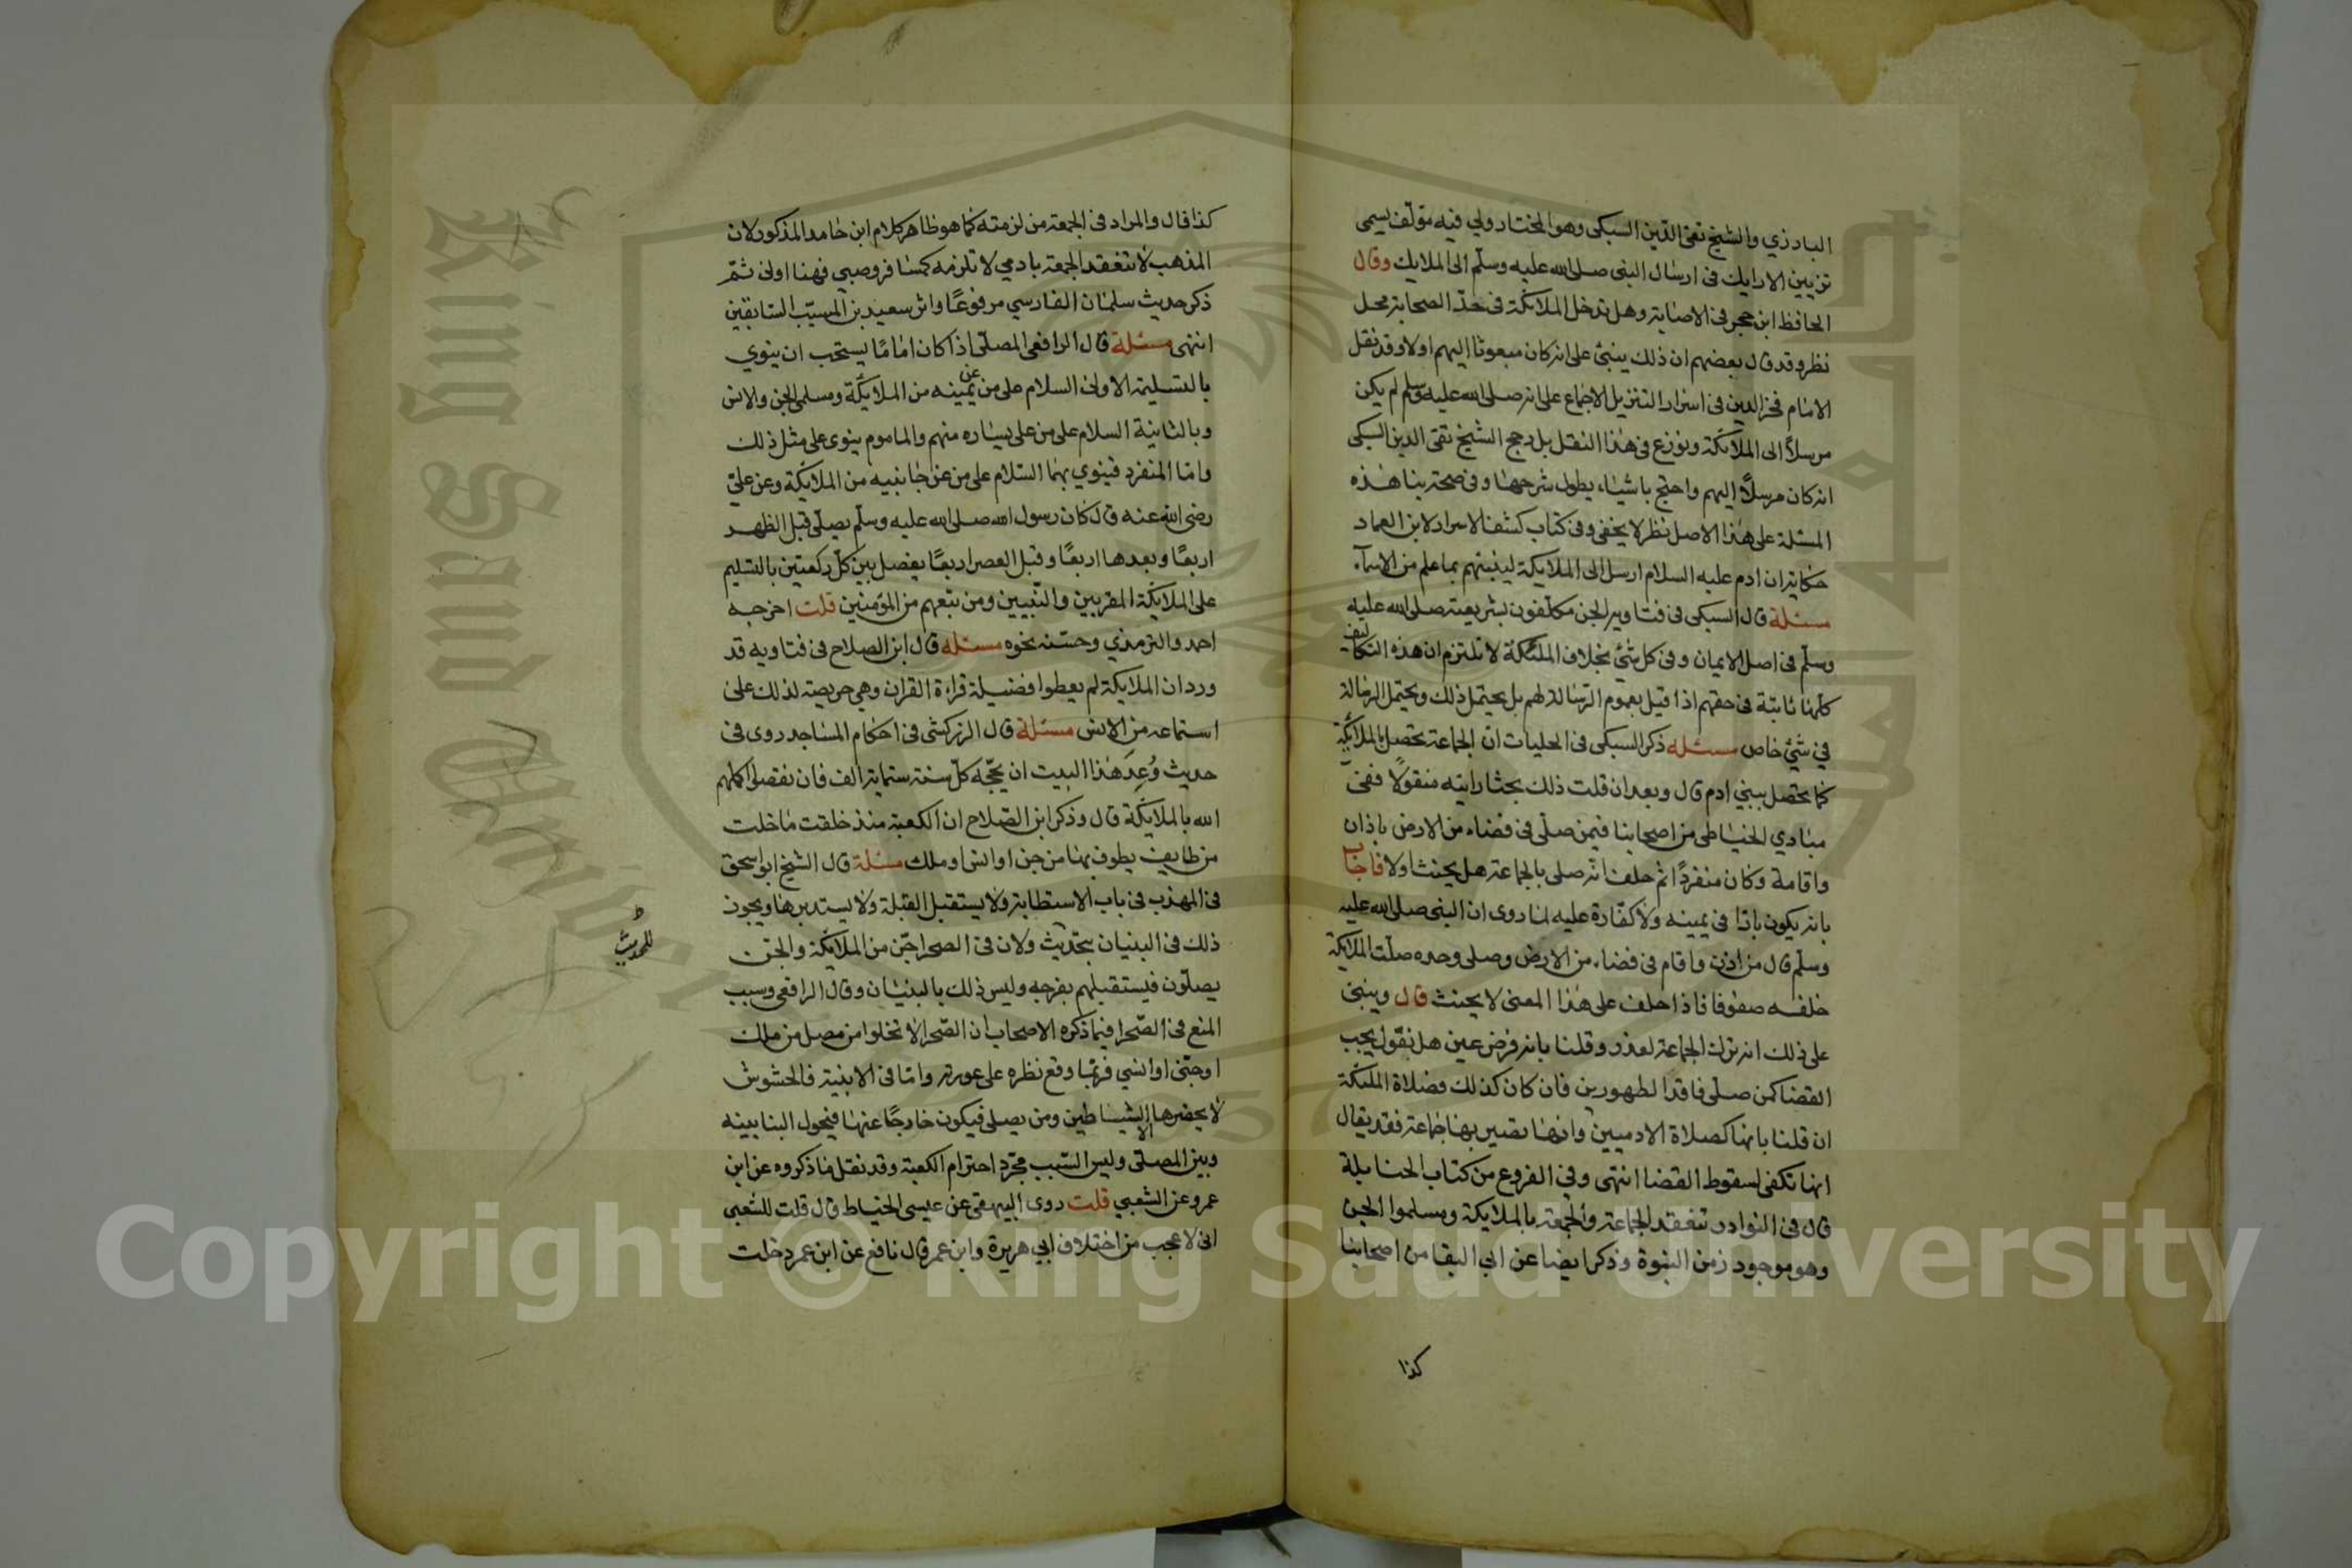 البارزي والشيخ تقي الدّين السبكى وهو المختار ولي فيه مؤلف يسمى
تزيين الارايك فى ارسال النبى صلى الله عليه وسلّم الى الملايك وقال
الحافظ ابن حجر فى الاصابة وهل تدخل الملائكة فى حدّ الصحابة محل
نظر وقد قال بعضهم ان ذلك ينبئ على انه كان مبعوثا اليهم اولا وقد نقل
الامام فخر الدين فى اسرار التنزيل الاجماع على انه صلى الله عليه وسلم لم يكن
مرسلاً الى الملائكة ونوزع فى هذا النقل بل رجح الشيخ تقى الدين السبكى
انه كان مرسلاً اليهم واحتج باشياء يطول شرحها وفى صحة بنا هذه
المسئلة على هذا الاصل نظر لا يخفى وفى كتاب كشف الاسرار لابن العماد
حكاية ان ادم عليه السلام ارسل الى الملايكة لينبئهم بما علم من الاسمآء
مسئلة قال السبكى فى فتاويه الجن مكلّفون بشريعته صلى الله عليه
وسلّم فى اصل الايمان وفى كل شئ بخلاف الملئكة لا نلتزم ان هذه التكاليف
كلّها ثابتة فى حقهم اذا قيل بعموم الرّسالة لهم بل يحتمل ذلك ويحتمل الرسالة
في شئ خاص مسئله ذكر السبكى فى الحلبيات انّ الجماعة تحصل بالملائكة
كما تحصل ببني ادم قال وبعد ان قلت ذلك بحثا رايته منقولاً ففى
فتاوي الحناطى من اصحابنا فيمن صلّى فى فضاء من الارض باذان
واقامة وكان منفردًا ثم حلف انّه صلى بالجماعة هل يحنث اولا فاجاب
بانه يكون بارّا فى يمينه ولا كفّارة عليه لما روى ان النبى صلى الله عليه
وسلّم قال من اذن واقام فى فضاء من الارض وصلى وحده صلّت الملائكة
خلفه صفوفا فاذا حلف على هذا المعنى لا يحنث قال وينبنى
على ذلك انه ترك الجماعة لعذر وقلنا بانه فرض عين هل نقول يجب
القضا كمن صلّى فاقد الطهورين فان كان كذلك فصلاة الملئكة
ان قلنا بانها كصلاة الادميين وانها تصير بها جماعة فقد يقال
انها تكفى لسقوط القضا انتهى وفي الفروع من كتاب الحنابلة
قال فى النوادر تنعقد الجماعة والجمعة بالملايكة ومسلموا الجن
وهو موجود زمن النبوة وذكر ايضا عن ابي البقا من اصحابنا
كذا
كذا قال والمراد فى الجمعة من لزمته كما هو ظاهر كلام ابن حامد المذكور لان
المذهب لا تنعقد الجمعة بادمي لا تلزمه كمسافر وصبي فهنا اولى ثمّ
ذكر حديث سلمان الفارسي مرفوعًا واثر سعيد بن المسيّب السّابقين
انتهى مسئلة قال الرافعى المصلّى اذا كان امامًا يستحب ان ينوي
بالتسليمة الاولى السلام على من عن يمينه من الملايكة ومسلمى الجن والانس
وبالثانية السلام على من على يساره منهم والماموم ينوى على مثل ذلك
وامّا المنفرد فينوي بهما السّلام على من عن جانبيه من الملايكة وعن عليّ
رضى الله عنه قال كان رسول الله صلى الله عليه وسلّم يصلّى قبل الظهر
اربعًا وبعدها اربعًا وقبل العصر اربعًا يفصل بين كلّ ركعتين بالتسليم
على الملايكة المقربين والنّبيين ومن تبعهم من المؤمنين قلت اخرجه
احمد والترمذي وحسّنه نحوه مسئله قال ابن الصلاح فى فتاويه قد
ورد ان الملايكة لم يعطوا فضيلة قراءة القران وهي حريصة لذلك على
استماعه من الانس مسئلة قال الزركشى فى احكام المساجد روى فى
حديث وُعِدَ هذا البيت ان يحجّه كلّ سنة ستماية الف فان نقصوا كملهم
الله بالملايكة قال وذكر ابن الصّلاح ان الكعبة منذ خلقت ما خلت
من طايف يطوف بها من جن او انس او ملك مسئلة قال الشيخ ابو اسحق
فى المهذب فى باب الاستطابة ولا يستقبل القبلة ولا يستدبرها ويجوز
ذلك فى البنيان بتحديث ولان فى الصحرا جنّ من الملايكة والجن
للحديث
يصلّون فيستقبلهم بفرجه وليس ذلك بالبنيان وقال الرافعى وسبب
المنع فى الصّحرا فيما ذكره الاصحاب ان الصّحرا لا تخلوا من مصل من ملك
او جنّى او انسي فربّما وقع نظره على عورته وامّا فى الابنية فالحشوش
لا يحضرها الا الشياطين ومن يصلى فيكون خارجًا عنها فيحول البنا بينه
وبين المصلّى وليس السّبب مجرّد احترام الكعبة وقد نقل ما ذكروه عن ابن
عمر وعن الشعبي قلت روى البيهقى عن عيسى الخياط قال قلت للشعبى
انى لاعجب من اختلاف ابي هريرة وابن عمر قال نافع عن ابن عمر دخلت
Copyright © King Saud University